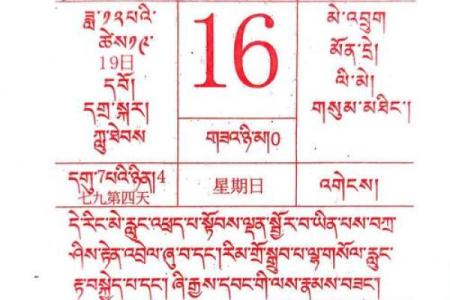 ཟླ་༡༢པའི་
ཚེས༡༩་
19日
དབོ།
དགྲ་སྐར།
ཀླུ་ཐེབས
16
གཟའ་ཉི་མ།0
མེ་འབྲུག
མོན་དྲེ།
ལི་མེ།
གསུམ་མཐིང་།
དགུ་7པའི་ཉིན།4
七九第四天
星期日
འགེངས།
དེ་རིང་མེ་རླུང་འཕྲད་པ་སྟོབས་ལྡན་སྦྱོར་བ་ཡིན་པས་བཀྲ་
ཤིས་རྟེན་འབྲེལ་ཞུ་བ་དང་། རིམ་གྲོ་སྒྲུབ་པ་ལྷ་གསོལ་རླུང་
རྟ་བསྐྱེད་པ་དང་། ཞི་རྒྱས་དབང་གི་ལས་རྣམས་བཟང་།